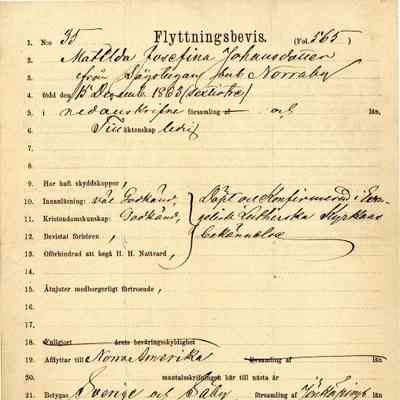 Flyttningsbevis.
1. N:o 35 (Fol. 565)
2. Matilda Josefina Johansdotter
3. från Norraby
4. född den 15 December 1863 (sextiotre)
5. i nedanskrifne församling och län,
6. Till äktenskap ledig
7.
8.
9. Har haft skyddskoppor,
10. Innanläsning: väl Godkänd, Döpt och Konfirmerad i Evan-
11. Kristendomskunskap: Godkänd, geliskt Lutherska Kyrkans
12. Bevistat förhören, bekännelse
13. Oförhindrad att begå H. H. Nattvard,
14.
15. Åtnjuter medborgerligt förtroende,
16.
17.
18. Fullgjort årets beväringsskyldighet
19. Afflyttar till Norra Amerika församling af län
20. mantalsskrifningen här till nästa år
21. Betygas Sverige och Säby församling af Jönköpings